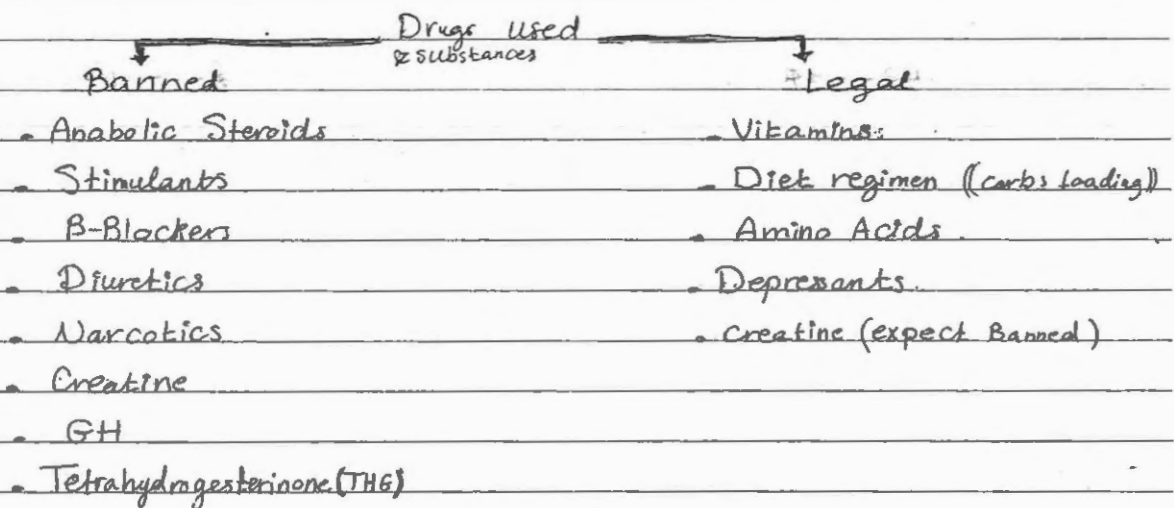 Drugs used
& substances
Banned
Legal
- Anabolic Steroids
- Stimulants
- B-Blockers
- Diuretics
- Narcotics
- Creatine
- GH
- Tetrahydrogesterinone (THG)
- Vitamins.
- Diet regimen ((carbs loading))
- Amino Acids.
- Depressants.
- Creatine (expect Banned)